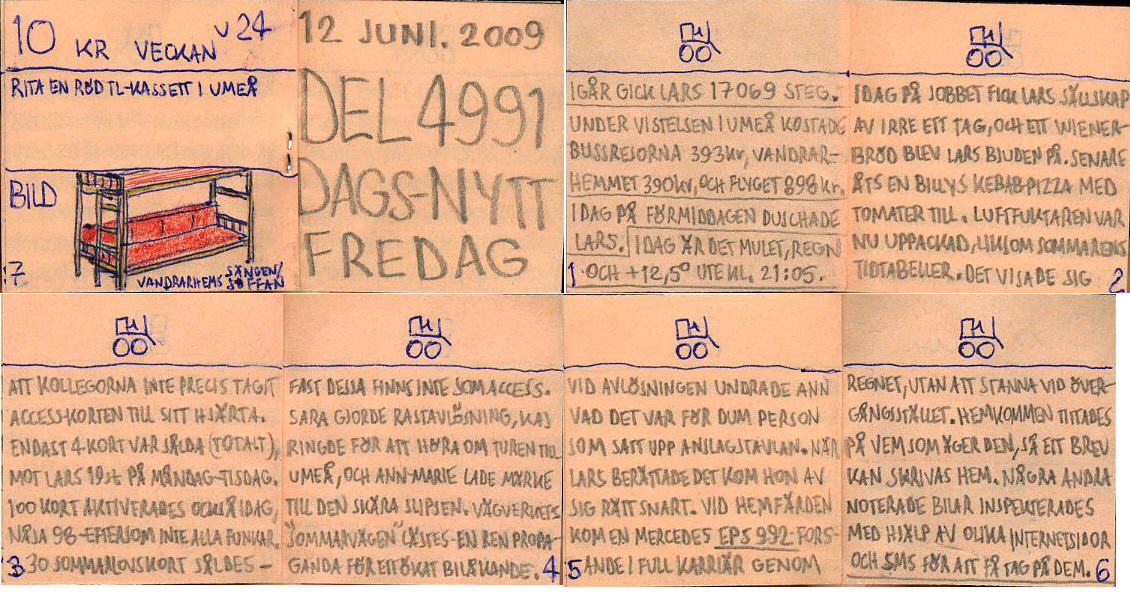 10 KR VECKAN V24
RITA EN RÖD TL-KASSETT I UMEÅ
BILD
7
VANDRARHEMS SÄNGEN/
SOFFAN
12 JUNI. 2009
DEL 4991
DAGS-NYTT
FREDAG
IGÅR GICK LARS 17069 STEG.
UNDER VISTELSEN I UMEÅ KOSTADE
BUSSRESORNA 393kr, VANDRAR-
HEMMET 390kr, OCH FLYGET 898 kr.
IDAG PÅ FÖRMIDDAGEN DUSCHADE
LARS. IDAG ÄR DET MULET, REGN
OCH +12,5° UTE KL. 21:05.
1
IDAG PÅ JOBBET FICK LARS SÄLLSKAP
AV IRRE ETT TAG, OCH ETT WIENER-
BRÖD BLEV LARS BJUDEN PÅ. SENARE
ÄTS EN BILLYS KEBAB-PIZZA MED
TOMATER TILL. LUFTFUKTAREN VAR
NU UPPACKAD, LIKSOM SOMMARENS
TIDTABELLER. DET VISADE SIG
2
ATT KOLLEGORNA INTE PRECIS TAGIT
ACCESS-KORTEN TILL SITT HJÄRTA.
ENDAST 4 KORT VAR SÅLDA (TOTALT),
MOT LARS 19st PÅ MÅNDAG-TISDAG.
100 KORT AKTIVERADES OCKSÅ IDAG,
NÄJA 98-EFTERSOM INTE ALLA FUNKAR.
30 SOMMARLONSKORT SÅLDES -
3
FAST DESSA FINNS INTE SOM ACCESS.
SARA GJORDE RASTAVLÖSNING, KAJ
RINGDE FÖR ATT HÖRA OM TUREN TILL
UMEÅ, OCH ANN-MARIE LADE MÄRKE
TILL DEN SKÄRA SLIPSEN. VÄGVERKETS
"SOMMARVÄGEN" LÄSTES-EN REN PROPA-
GANDA FÖR ETT ÖKAT BILÅKANDE.
4
VID AVLÖSNINGEN UNDRADE ANN
VAD DET VAR FÖR DUM PERSON
SOM SATT UPP ANSLAGSTAVLAN. NÄR
LARS BERÄTTADE DET KOM HON AV
SIG RÄTT SNART. VID HEMFÄRDEN
KOM EN MERCEDES EPS 992-FORS-
ANDE I FULL KARRIÄR GENOM
5
REGNET, UTAN ATT STANNA VID ÖVER-
GÅNGSSTÄLLET. HEMKOMMEN TITTADES
PÅ VEM SOM ÄGER DEN, SÅ ETT BREV
KAN SKRIVAS HEM. NÅGRA ANDRA
NOTERADE BILAR INSPEKTERADES
MED HJÄLP AV OLIKA INTERNETSIDOR
OCH SMS FÖR ATT FÅ TAG PÅ DEM.
6